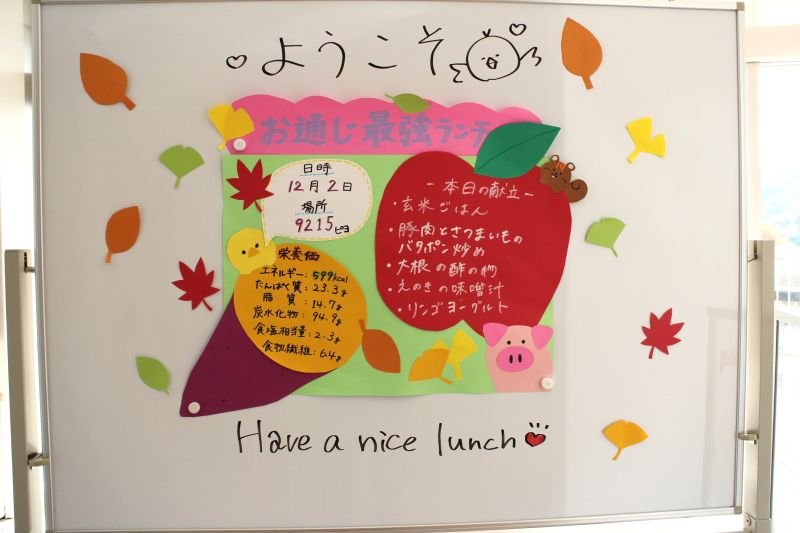 ようこそ
お通じ最強ランチ
日時
12月2日
場所
9215ピヨ
栄養価
エネルギー:599kcal
たんぱく質:23.3g
脂質:14.7g
炭水化物:94.9g
食塩相当量:2.3g
食物繊維:6.4g
-本日の献立-
・玄米ごはん
・豚肉とさつまいもの
バタポン炒め
・大根の酢の物
・えのきの味噌汁
・リンゴヨーグルト
Have a nice lunch